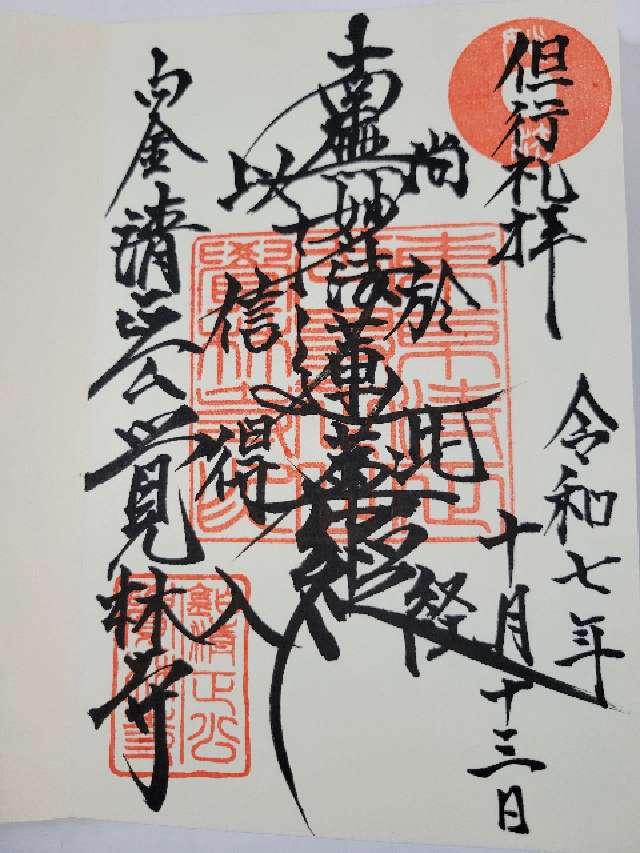 但行礼拝
令和七年
十月十三日
尚於此経
南無妙法蓮華経
以信得入
白金清正公覚林寺